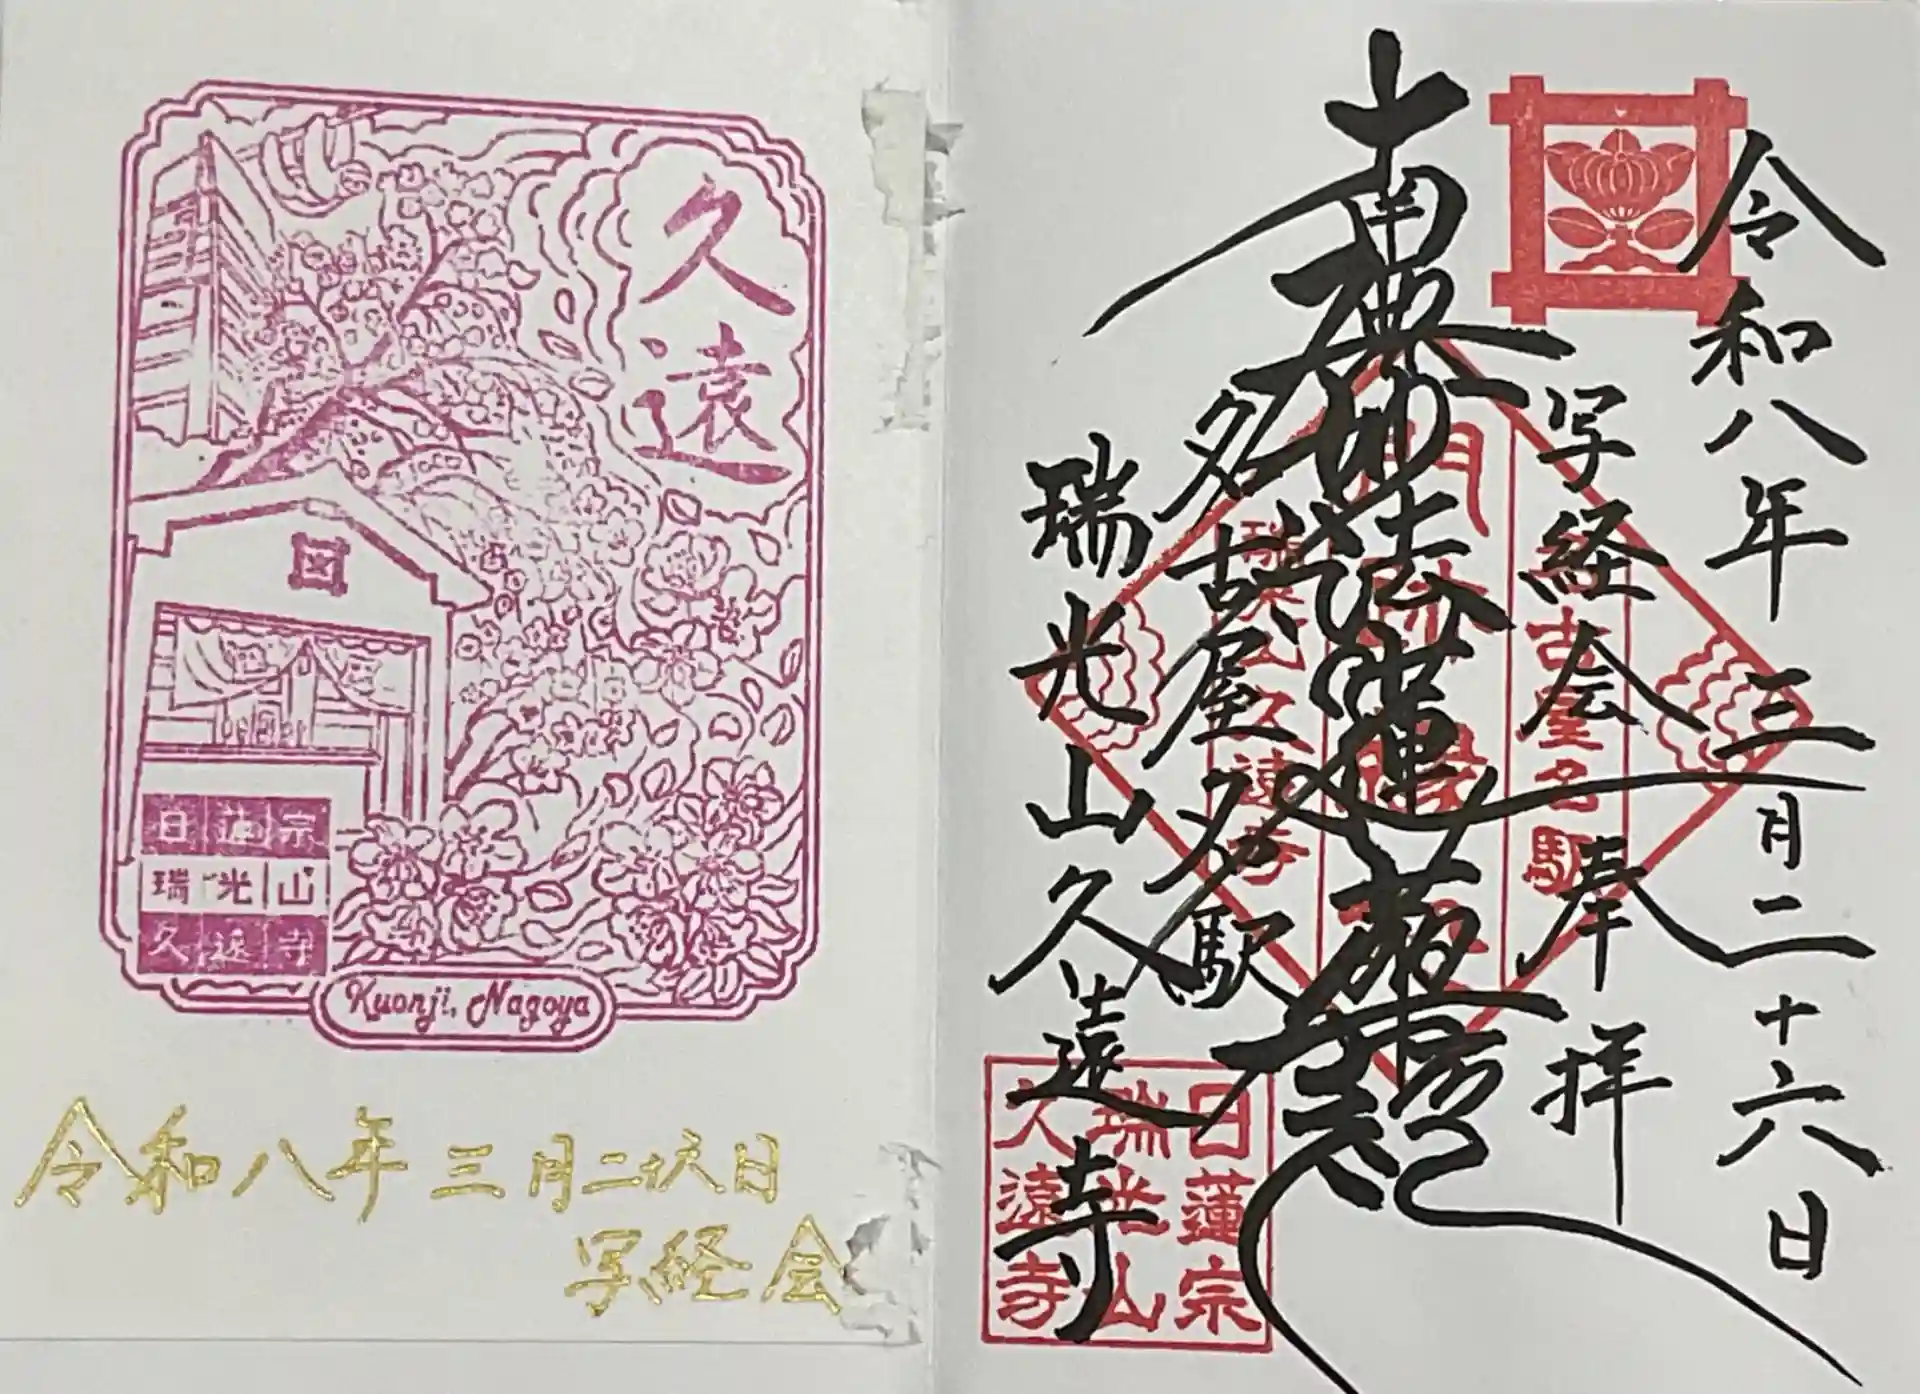 久遠
日蓮宗
瑞光山
久遠寺
Kuonji, Nagoya
令和八年三月二十六日
写経会
令和八年三月二十六日
写経会 奉拝
南無妙法蓮華経
名古屋名駅
瑞光山久遠寺
名古屋名駅
開運
瑞光山久遠寺
日蓮宗
瑞光山
久遠寺